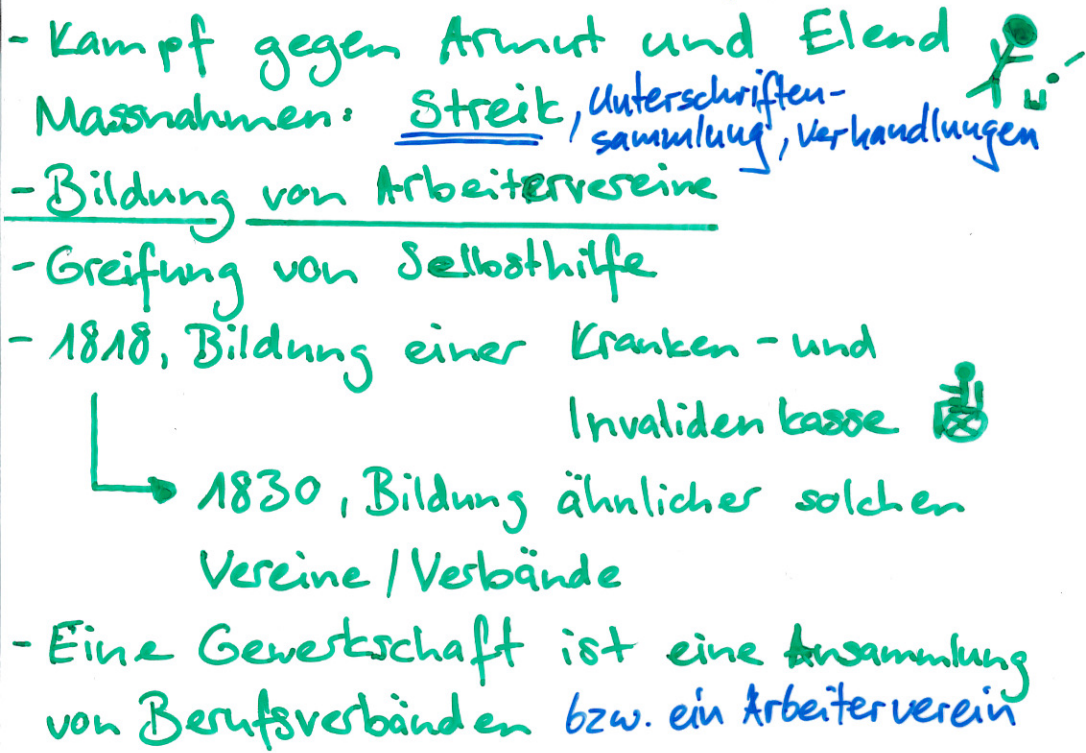 - Kampf gegen Armut und Elend
Massnahmen: Streik, Unterschriften-
sammlung, Verhandlungen
- Bildung von Arbeitervereine
- Greifung von Selbsthilfe
- 1818, Bildung einer Kranken - und
Invalidenkasse
1830, Bildung ähnlicher solchen
Vereine / Verbände
- Eine Gewerkschaft ist eine Ansammlung
von Berufsverbänden bzw. ein Arbeiterverein